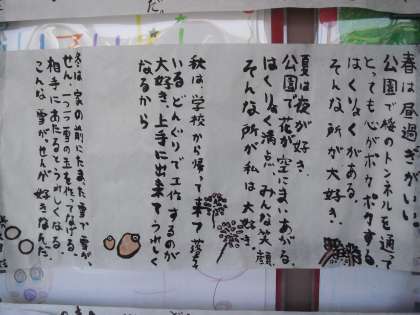 春は昼過ぎがいい。
公園で桜のトンネルを通って
とっても心がポカポカする。
はくりょくがある。
そんな所が大好き。
夏は夜が好き。
公園で花が空にまいあがる。
はくりょく満点、みんな笑顔
そんな所が私は大好き。
秋は、学校から帰って来て落ちて
いるどんぐりで工作するのが
大好き。上手に出来てうれしく
なるから
冬は家の前にたまた雪で雪が
せん。一つ一つ雪の玉を作ってなげる。
相手にあたるとうれしくなる。
こんな雪がせんが好きなんだ。